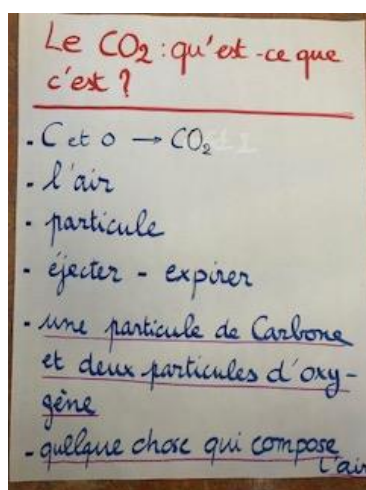 Le CO2 : qu'est-ce que
c'est ?
- C et O → CO2
- l'air
- particule
- éjecter - expirer
- une particule de Carbone
et deux particules d'oxy-
gène
- quelque chose qui compose
l'air